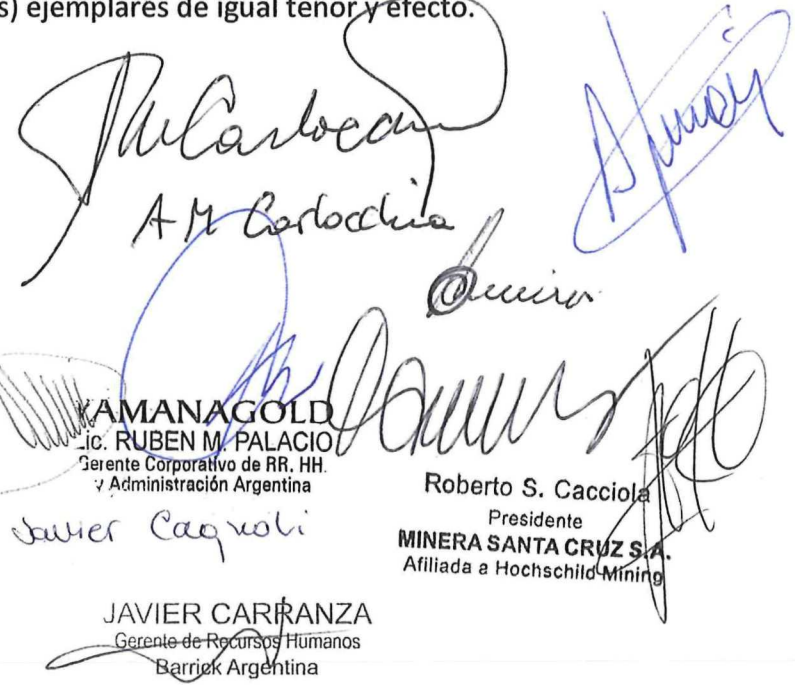 s) ejemplares de igual tenor y efecto.
A M Carlocchia
YAMANAGOLD
Lic. RUBEN M. PALACIO
Gerente Corporativo de RR. HH.
y Administración Argentina
Javier Cagnoli
Roberto S. Cacciola
Presidente
MINERA SANTA CRUZ S.A.
Afiliada a Hochschild Mining
JAVIER CARRANZA
Gerente de Recursos Humanos
Barrick Argentina